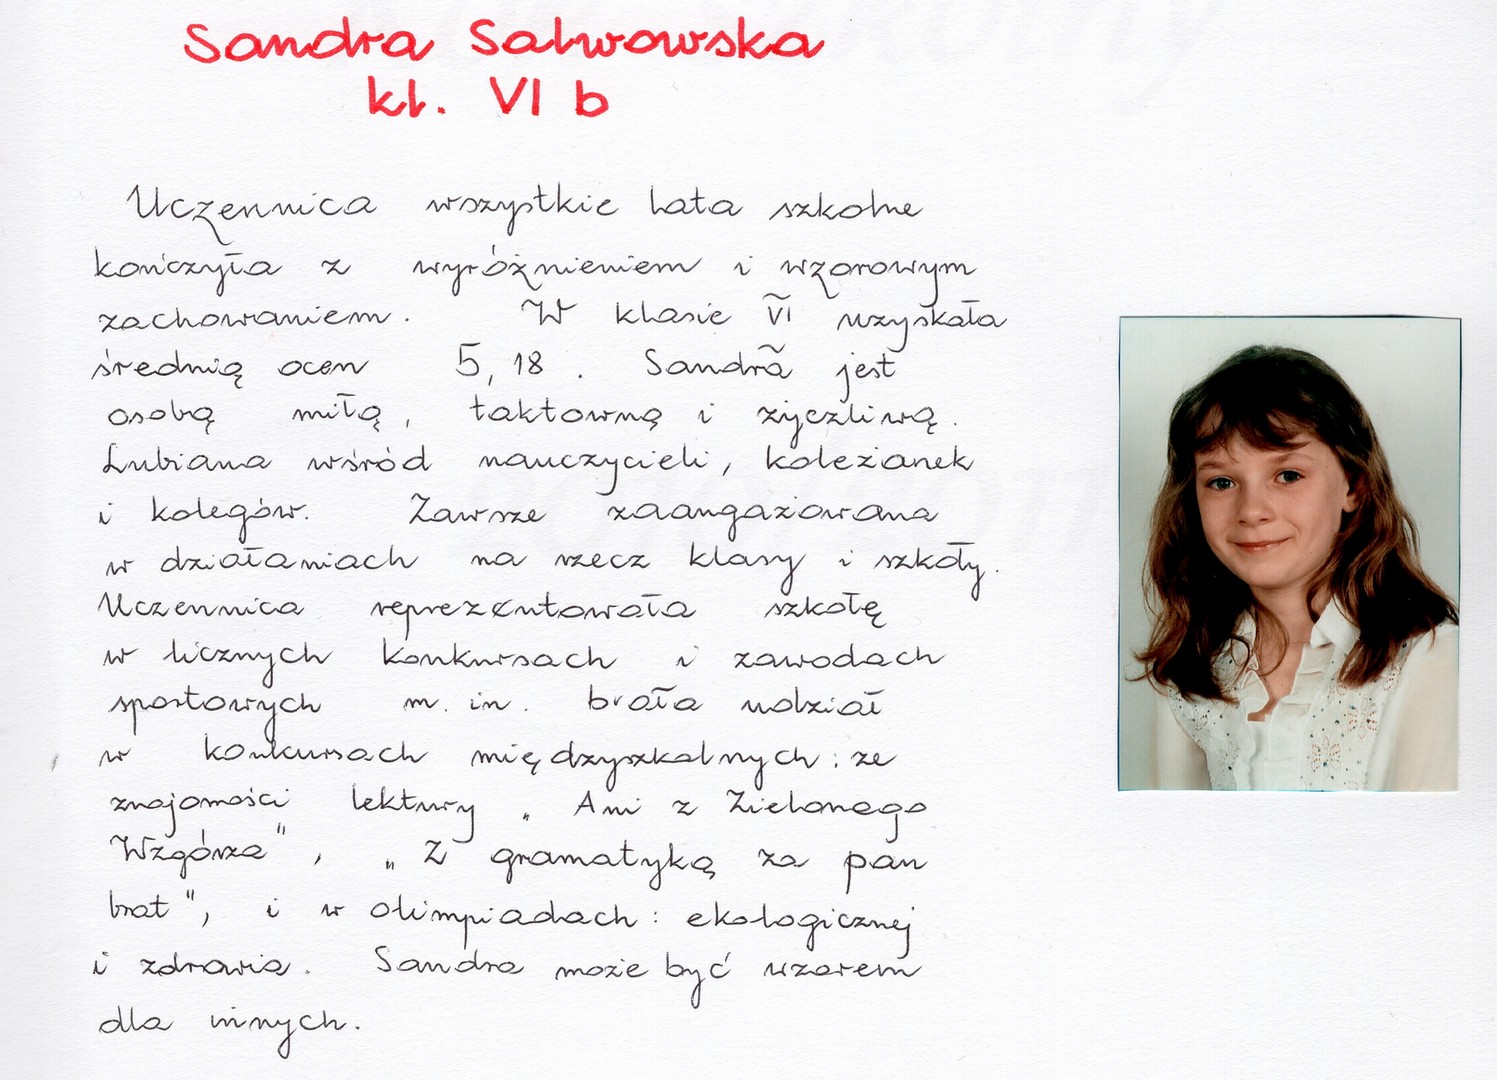 Sandra Salwowska
kl. VI b
Uczennica wszystkie lata szkolne
kończyła z wyróżnieniem i wzorowym
zachowaniem. W klasie VI uzyskała
średnią ocen 5,18. Sandra jest
osobą miłą, taktowną i życzliwą.
Lubiana wśród nauczycieli, koleżanek
i kolegów. Zawsze zaangażowana
w działaniach na rzecz klasy i szkoły.
Uczennica reprezentowała szkołę
w licznych konkursach i zawodach
sportowych m. in. brała udział
w konkursach międzyszkolnych: ze
znajomości lektury „Ani z Zielonego
Wzgórza", „Z gramatyką za pan
brat", i w olimpiadach: ekologicznej
i zdrowia. Sandra może być wzorem
dla innych.